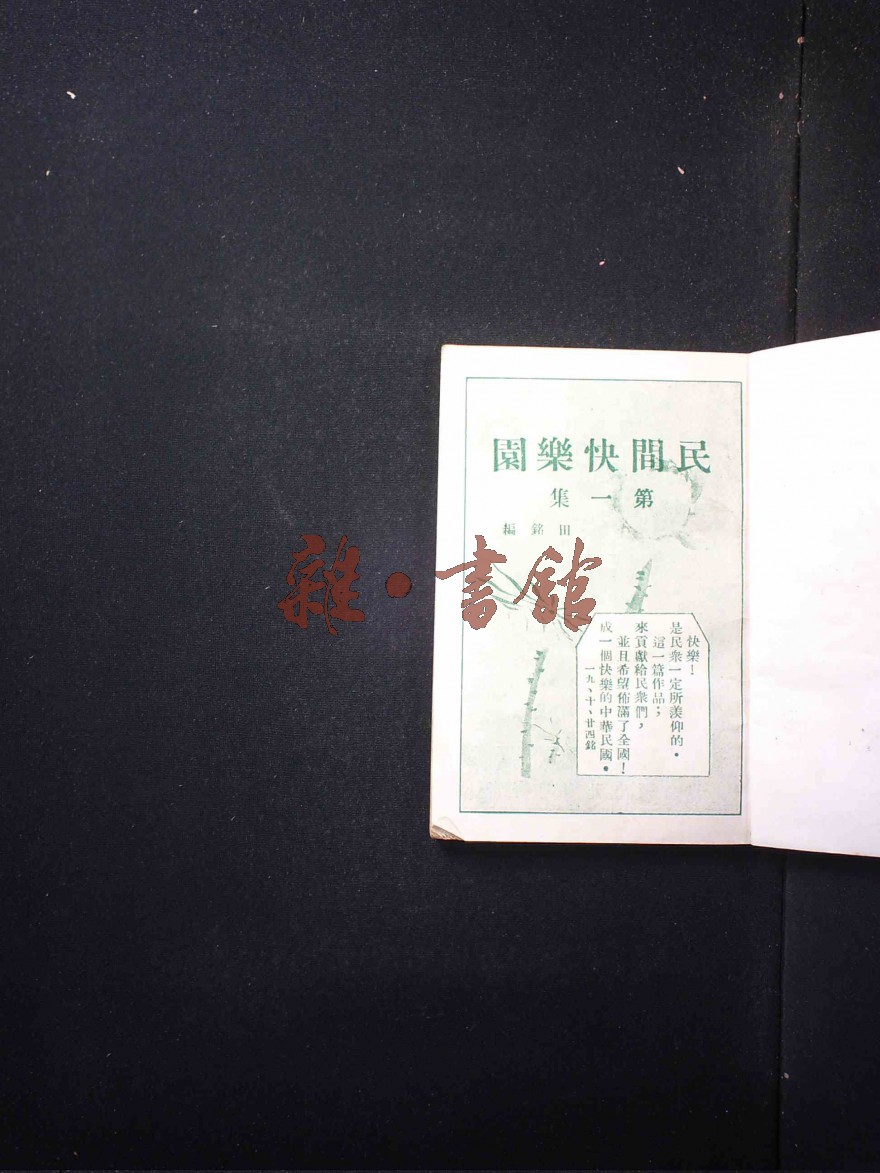 民間快樂園
第一集
田銘編
快樂！
是民衆一定所羨仰的．
這一篇作品；
來貢獻給民衆們，
並且希望佈滿了全國！
成一個快樂的中華民國．
一九、十、廿四銘
雜·書館